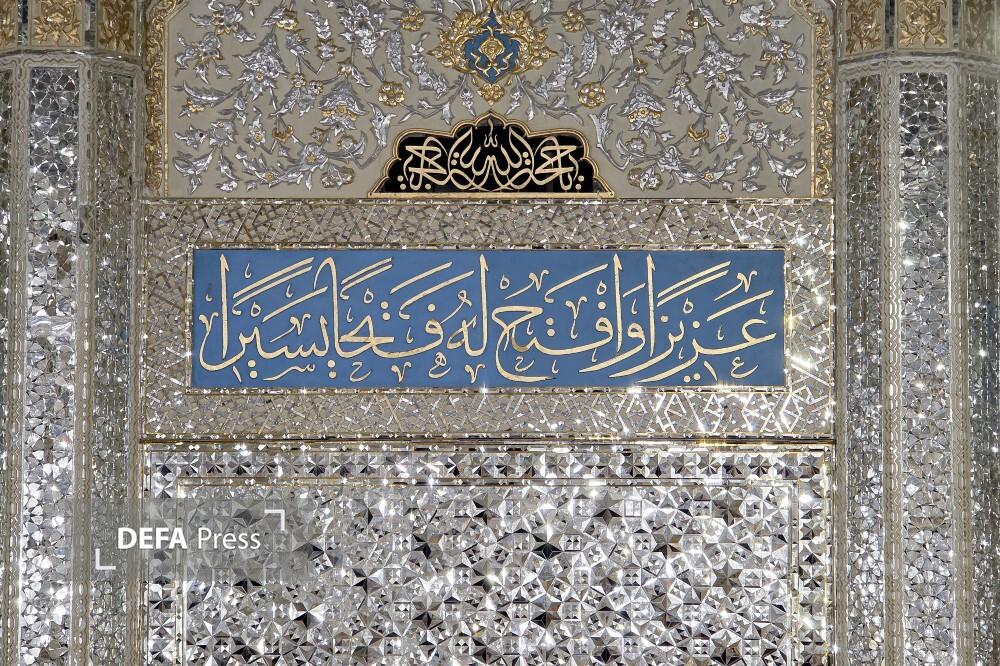 یا حجة الله
عَزيزًا وَافتَح لَهُ فَتحًا يَسيرًا
DEFA Press